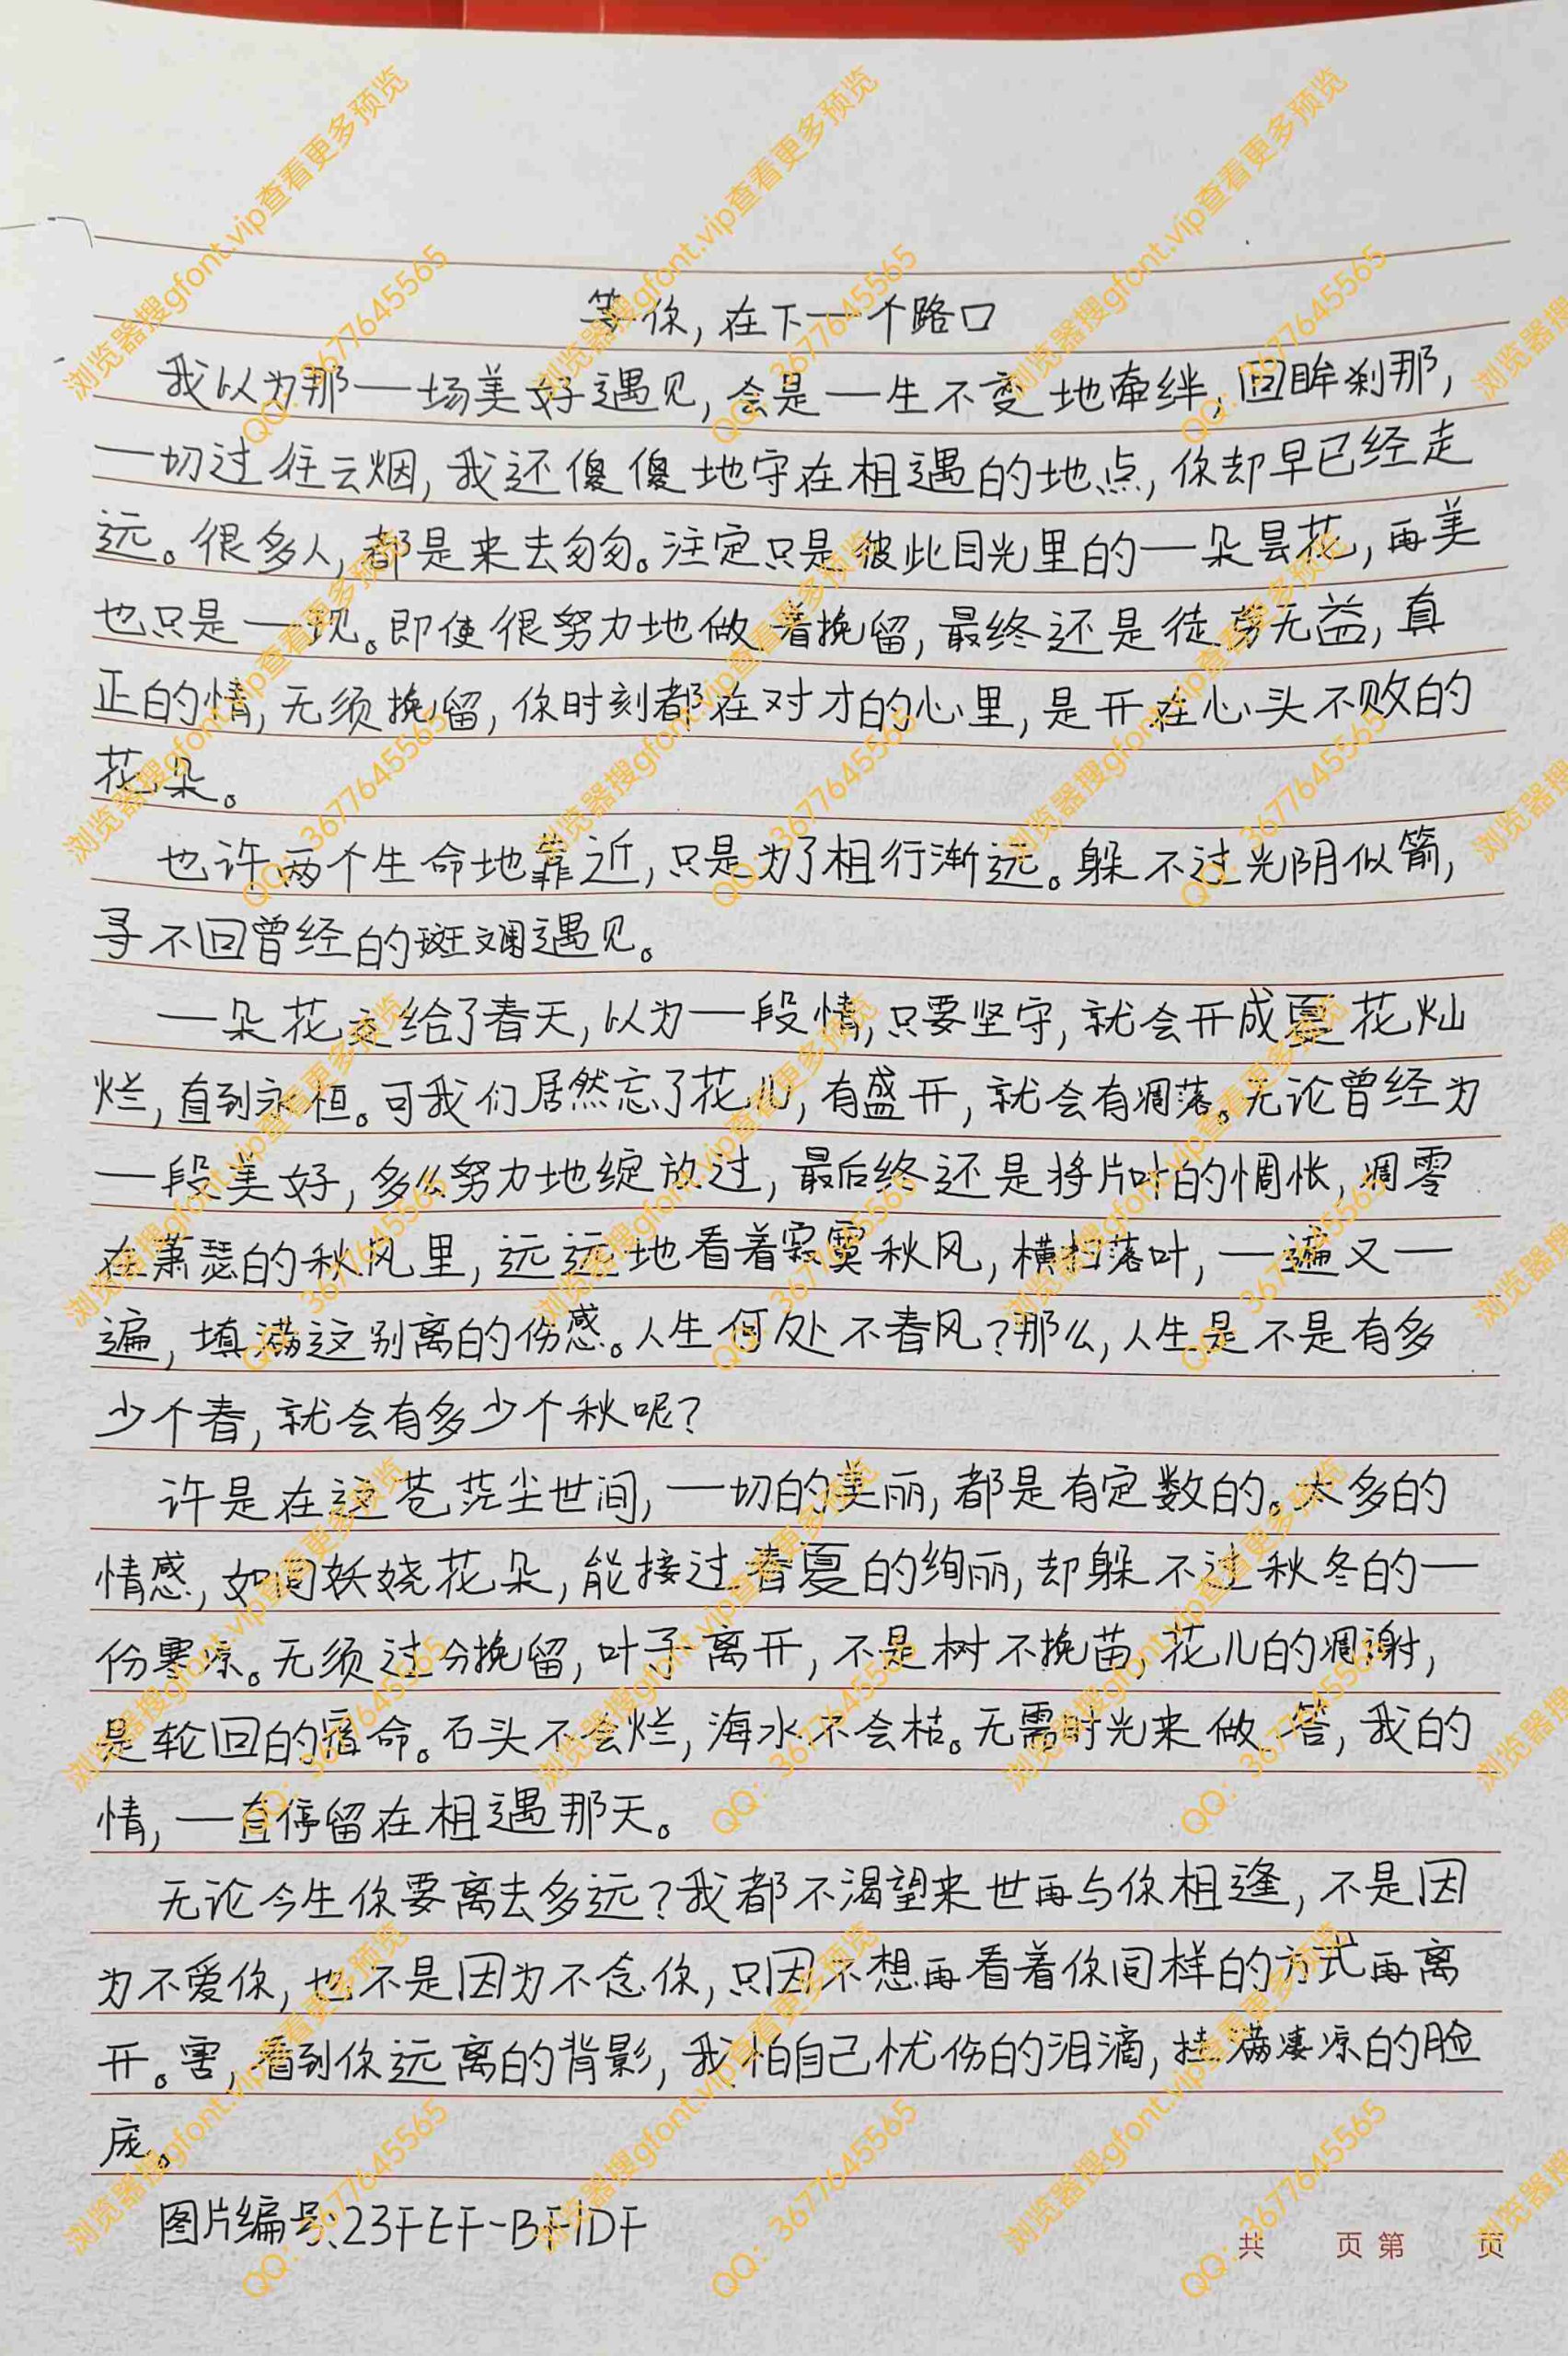 等你，在下一个路口
我以为那一场美好遇见，会是一生不变地牵绊，回眸刹那，
一切过往云烟，我还傻傻地守在相遇的地点，你却早已经走
远。很多人，都是来去匆匆。注定只是彼此目光里的一朵昙花，再美
也只是一现。即使很努力地做着挽留，最终还是徒劳无益，真
正的情，无须挽留，你时刻都在对才的心里，是开在心头不败的
花朵。
也许两个生命地靠近，只是为了相行渐远。躲不过光阴似箭，
寻不回曾经的斑斓遇见。
一朵花交给了春天，以为一段情，只要坚守，就会开成夏花灿
烂，直到永恒。可我们居然忘了花儿，有盛开，就会有凋落。无论曾经为
一段美好，多么努力地绽放过，最后终还是将片叶的惆怅，凋零
在萧瑟的秋风里，远远地看着寂寞秋风，横扫落叶，一遍又一
遍，填满这别离的伤感。人生何处不春风？那么，人生是不是有多
少个春，就会有多少个秋呢？
许是在这苍茫尘世间，一切的美丽，都是有定数的。太多的
情感，如同妖娆花朵，能接过春夏的绚丽，却躲不过秋冬的一
份寒凉。无须过分挽留，叶子离开，不是树不挽苗，花儿的凋谢，
是轮回的宿命。石头不会烂，海水不会枯。无需时光来做答，我的
情，一直停留在相遇那天。
无论今生你要离去多远？我都不渴望来世再与你相逢，不是因
为不爱你，也不是因为不念你，只因不想再看着你同样的方式再离
开。害，看到你远离的背影，我怕自己忧伤的泪滴，挂满凄凉的脸
庞。
图片编号：23FEF-BF1DF
共 页 第 页
浏览器搜gfont.vip查看更多预览
QQ：3677645565